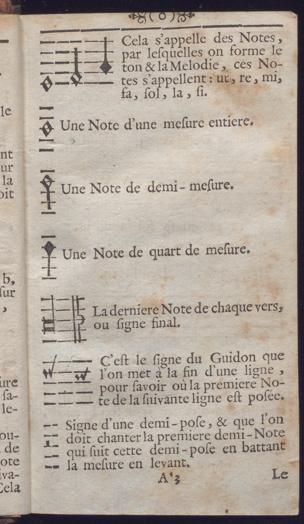 (6)
Cela s'appelle des Notes,
par lesquelles on forme le
ton & la Melodie, ces No-
tes s'appellent: ut, re, mi,
fa, sol, la, si.
Une Note d'une mesure entiere.
Une Note de demi-mesure.
Une Note de quart de mesure.
La derniere Note de chaque vers,
ou signe final.
C'est le signe du Guidon que
l'on met à la fin d'une ligne,
pour savoir où la premiere No-
te de la suivante ligne est posée.
Signe d'une demi-pose, & que l'on
doit chanter la premiere demi-Note
qui suit cette demi-pose en battant
la mesure en levant.
A 3
Le